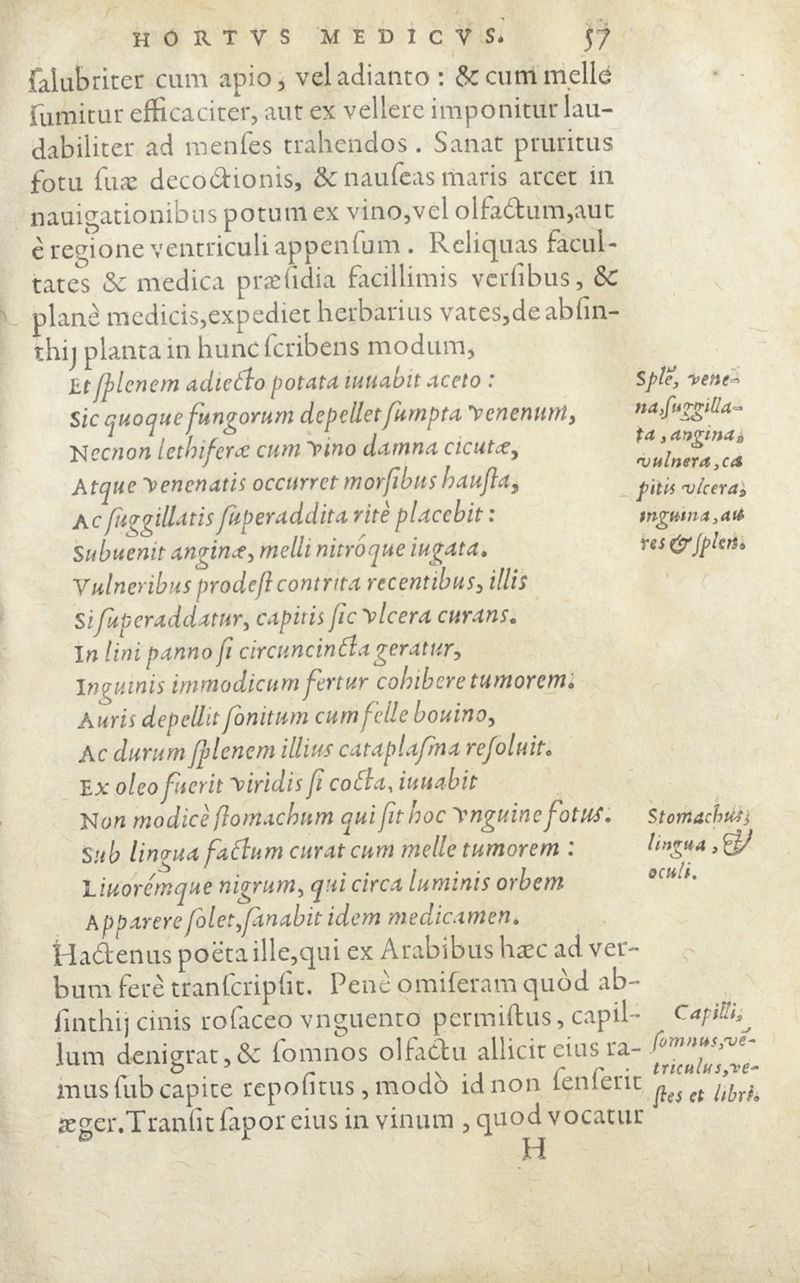 HORTVS MEDICVS. 57
ſalubriter cum apio, vel adianto : & cum melle
ſumitur efficaciter, aut ex vellere imponitur lau-
dabiliter ad menſes trahendos. Sanat pruritus
fotu ſuæ decoctionis, & nauſeas maris arcet in
nauigationibus potum ex vino, vel olfactum, aut
è regione ventriculi appenſum. Reliquas facul-
tates & medica præſidia facillimis verſibus, &
planè medicis, expediet herbarius vates, de abſin-
thij planta in hunc ſcribens modum,
Et ſplenem adiecto potata iuuabit aceto :
Sic quoque fungorum depellet ſumpta venenum,
Necnon lethiferæ cum vino damna cicutæ,
Atque venenatis occurret morſibus hauſta,
Ac ſuggillatis ſuperaddita ritè placebit :
Subuenit anginæ, melli nitróque iugata.
Vulneribus prodeſt contrita recentibus, illis
Si ſuperaddatur, capitis ſic vlcera curans.
In lini panno ſi circuncincta geratur,
Inguinis immodicum fertur cohibere tumorem.
Auris depellit ſonitum cum felle bouino,
Ac durum ſplenem illius cataplaſma reſoluit.
Ex oleo fuerit viridis ſi cocta, iuuabit
Non modicè ſtomachum qui ſit hoc vnguine fotus.
Sub lingua factum curat cum melle tumorem :
Liuorémque nigrum, qui circa luminis orbem
Apparere ſolet, ſanabit idem medicamen.
Hactenus poëta ille, qui ex Arabibus hæc ad ver-
bum ferè tranſcripſit. Penè omiſeram quòd ab-
ſinthij cinis roſaceo vnguento permiſtus, capil-
lum denigrat, & ſomnos olfactu allicit eius ra-
mus ſub capite repoſitus, modò id non ſenſerit
æger. Tranſit ſapor eius in vinum, quod vocatur
H
Splē, vene-
na, ſuggilla-
ta, angina,
vulnera, ca
pitis vlcera,
inguina, au
res & ſplen.
Stomachus,
lingua, &
oculi.
Capilli,
ſomnus, vē-
triculus, ve-
ſtes et libri.